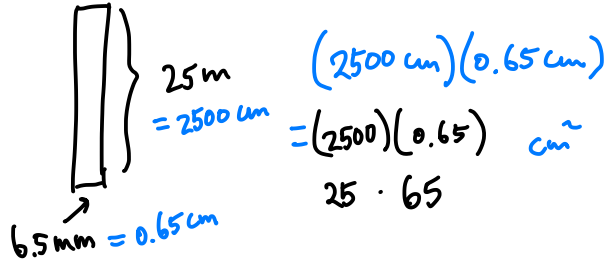 25 m
= 2500 cm
6.5 mm = 0.65 cm
(2500 cm)(0.65 cm)
= (2500)(0.65) cm²
25 · 65